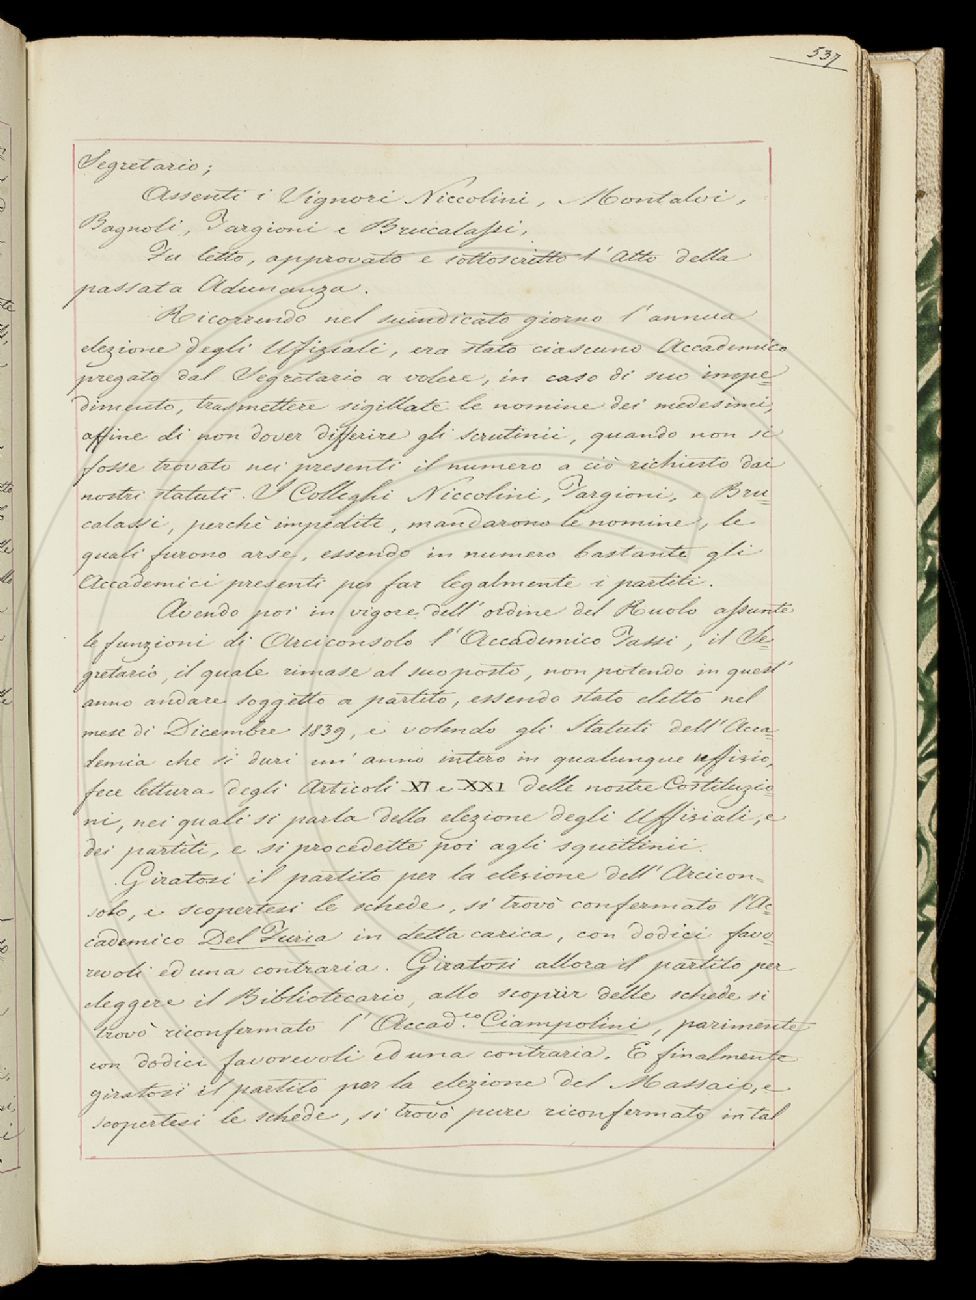 537
Segretario;
Assenti i Signori Niccolini, Montalvi,
Bagnoli, Targioni e Brucalassi.
Fu letto, approvato e sottoscritto l'Atto della
passata Adunanza.
Ricorrendo nel suindicato giorno l'annua
elezione degli Ufiziali, era stato ciascuno Accademico
pregato dal Segretario a volere, in caso di suo impe=
dimento, trasmettere sigillate le nomine dei medesimi,
affine di non dover differire gli scrutinii, quando non si
fosse trovato nei presenti il numero a ciò richiesto dai
nostri statuti. I Colleghi Niccolini, Targioni, e Bru=
calassi, perchè impediti, mandarono le nomine, le
quali furono arse, essendo in numero bastante gli
Accademici presenti per far legalmente i partiti.
Avendo poi in vigore dell'ordine del Ruolo assunte
le funzioni di Arciconsolo l'Accademico Tassi, il Se=
gretario, il quale rimase al suo posto, non potendo in quest'
anno andare soggetto a partito, essendo stato eletto nel
mese di Dicembre 1839, e volendo gli Statuti dell'Acca=
demia che si duri un'anno intero in qualunque uffizio,
fece lettura degli Articoli XI e XXI delle nostre Costituzio=
ni, nei quali si parla della elezione degli Uffiziali, e
dei partiti, e si procedette poi agli squittinii.
Giratosi il partito per la elezione dell'Arcicon=
solo, e scopertesi le schede, si trovò confermato l'Ac=
cademico Del Furia in detta carica, con dodici favo=
revoli ed una contraria. Giratosi allora il partito per
eleggere il Bibliotecario, allo scoprir delle schede si
trovò riconfermato l'Accad.co Ciampolini, parimente
con dodici favorevoli ed una contraria. E finalmente
giratosi il partito per la elezione del Massaio, e
scopertesi le schede, si trovò pure riconfermato in tal